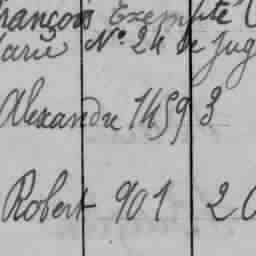 François Exempté
Marie N° 24 de Jug
Alexandre 1459 3
Robert 901 20